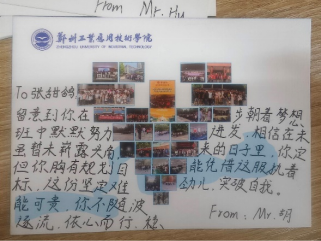 From Mr. Hu
郑州工业应用技术学院
ZHENGZHOU UNIVERSITY OF INDUSTRIAL TECHNOLOGY
To 张甜鸽
留意到你在
班中默默努力
虽暂未崭露头角
但你胸有规划目
标,这份坚定难
能可贵,你不随波
逐流,依心而行,稳
步朝着梦想
进发,相信在未
来的日子里,你定
能凭借这股执着
劲儿,突破自我。
From:Mr.胡